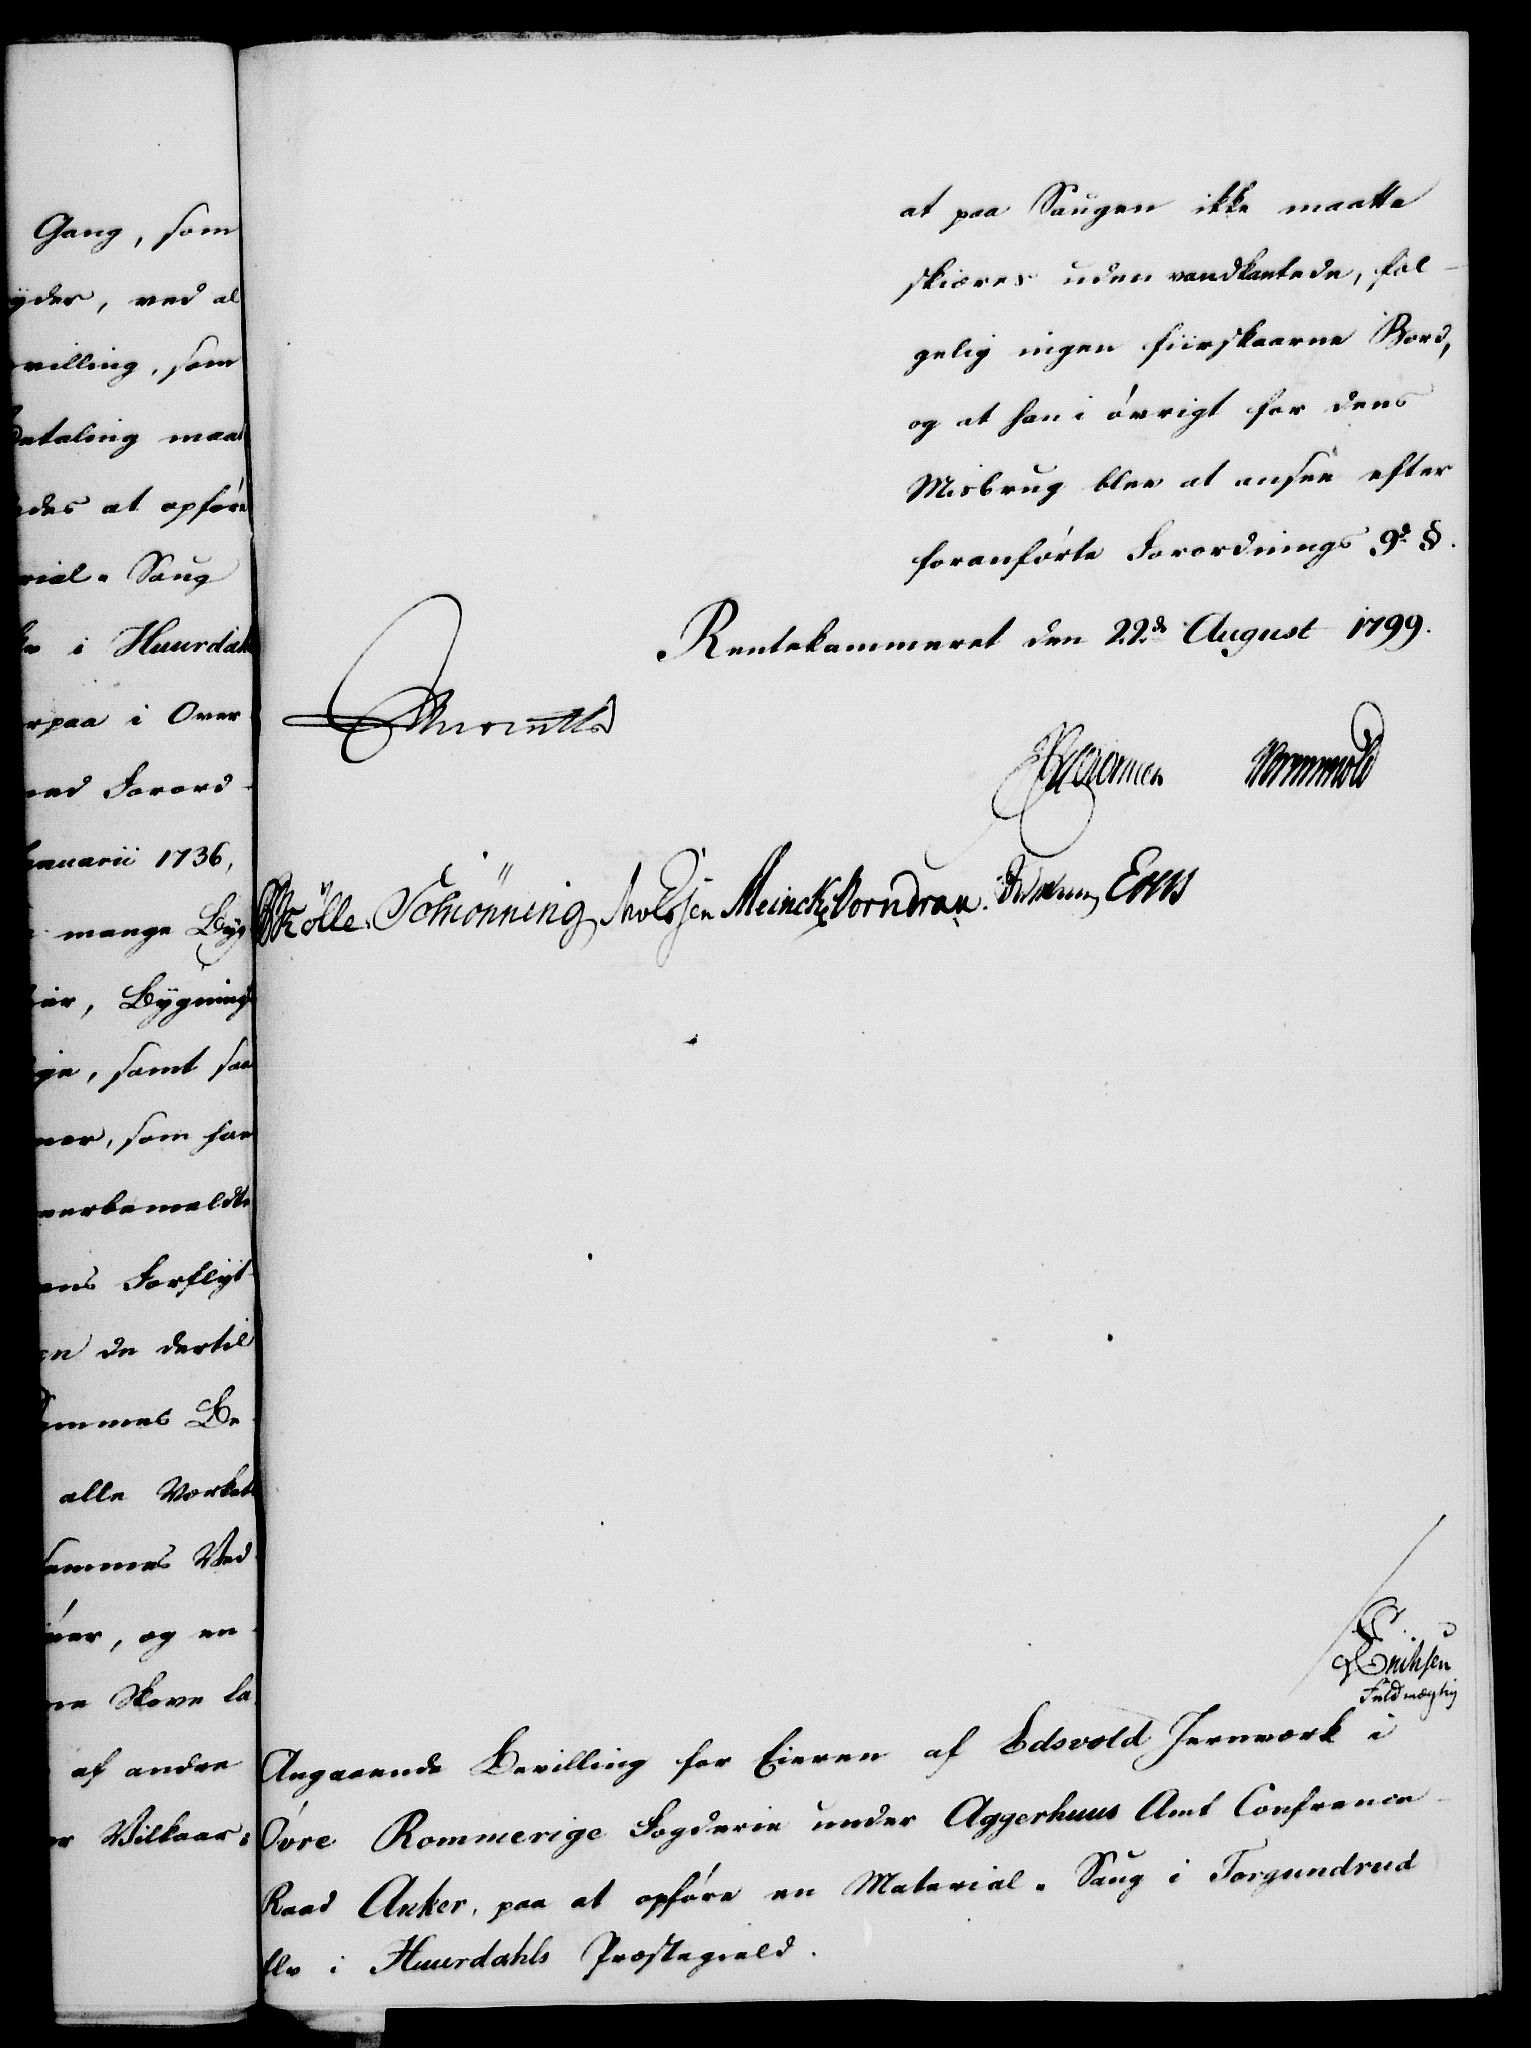 Gang, som
yder, ved al
villing, som
Betaling maat
des at opföre
rial-Saug
i Huurdals
rpaa i Over
med Forord-
Januarii 1736,
mange Byg
Bygnings
samt saa
som har
ovenbemeldte
Forflyt-
de dertil
ammes Be-
alle Værkets
sammes Ved-
over, og en-
Skove la-
af andre
Vilkaar:
at paa Saugen ikke maatte
skiæres uden vandkantede, föl-
gelig ingen fiirskaarne Bord,
og at han i övrigt for dens
Misbrug blev at ansee efter
foranförte Forordnings 9de §.
Rentekammeret den 22de August 1799.
Wormskiold
Skölle. Schiönning Meincke Vorndran. Evers
Eriksen
Fuldmægtig
Angaaende Bevilling for Eieren af Edsvold Jernværk i
Övre Rommerige Fogderie under Aggerhuus Amt Conference-
Raad Anker, paa at opföre en Material-Saug i Torgundrud
Elv i Huurdahls Præstegield.